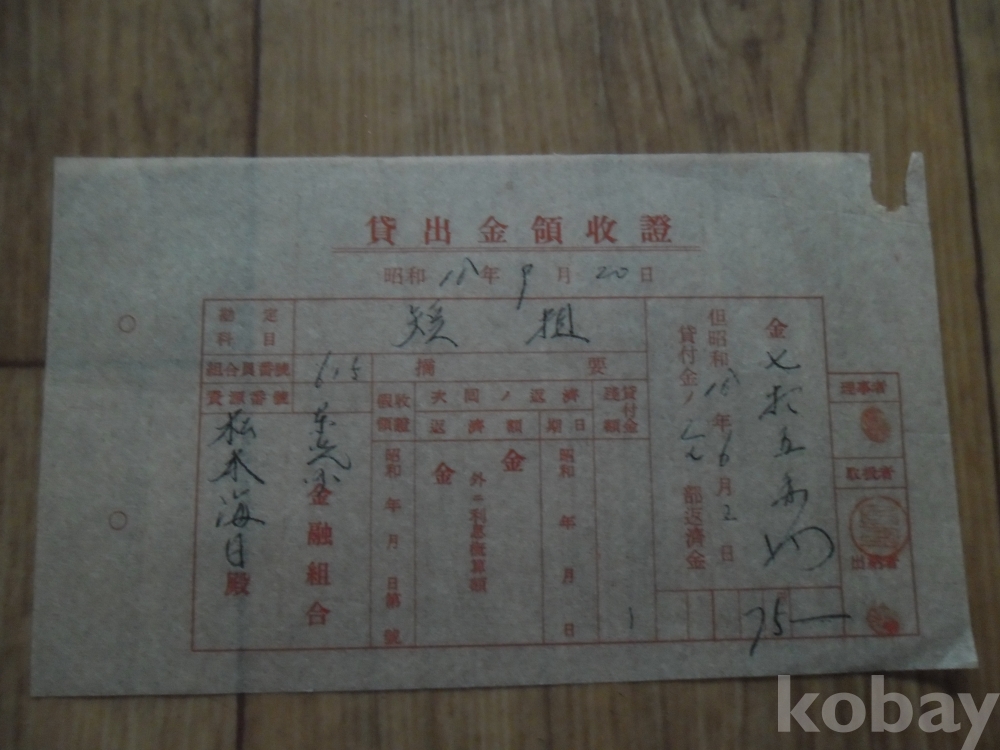 貸出金領收證
昭和18年9月20日
金七拾五円
但昭和18年6月2日
貸付金ノ 部返濟金
75—
勘定科目
短 担
組合員番號
615
資源番號
摘 要
假收領證
次回ノ返濟
返濟額
期日
貸付金殘額
昭和 年 月 日第 號
金
金
外ニ利息概算額
昭和 年 月 日
金融組合
松本海日殿
理事者
取扱者
出納者
kobay